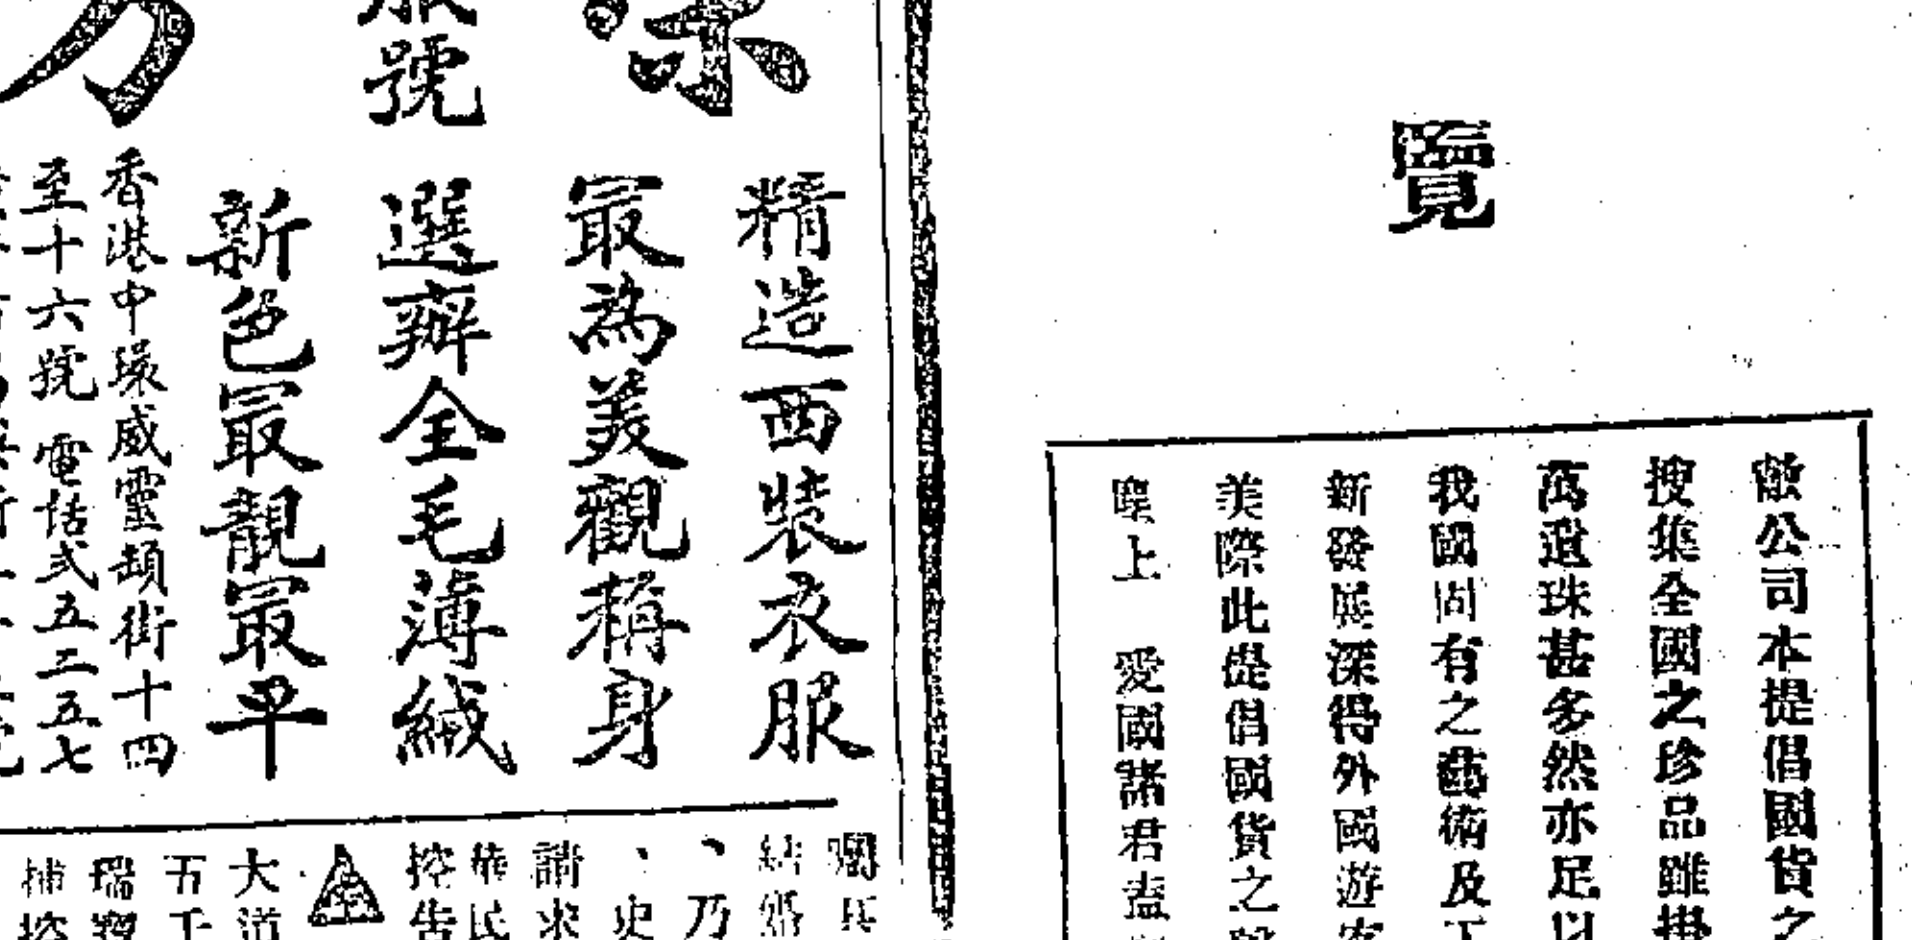 覽
敝公司本提倡國貨之
搜集全國之珍品雖掛
萬遺珠甚多然亦足以
我國固有之藝術及工
新發展深得外國遊客
美際此提倡國貨之
塵上 愛國諸君盍
號
精造西裝衣服
最為美觀稱身
選辦全毛薄絨
新色最靚最平
香港中環威靈頓街十四
至十六號 電話式五二五七
結婚
、乃
、史
請求
華民
控告
大道
五千
瑞
捕控